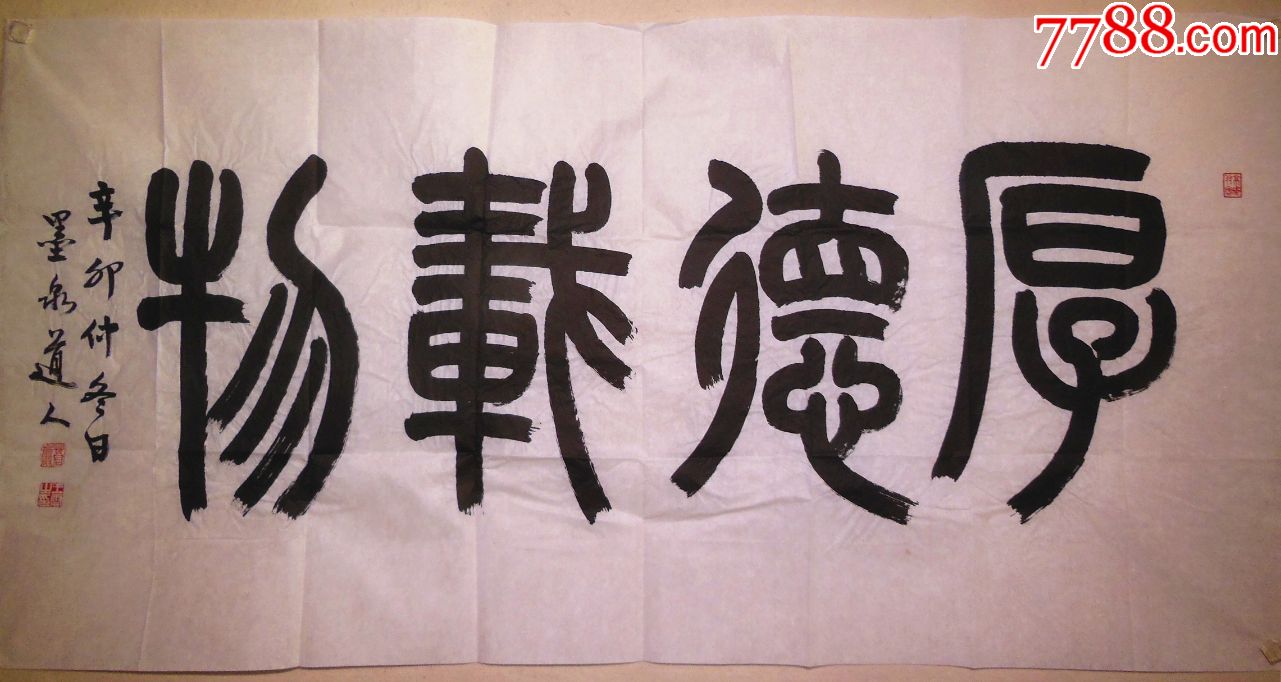 厚德載物
辛卯仲冬日
墨泉道人
7788.com